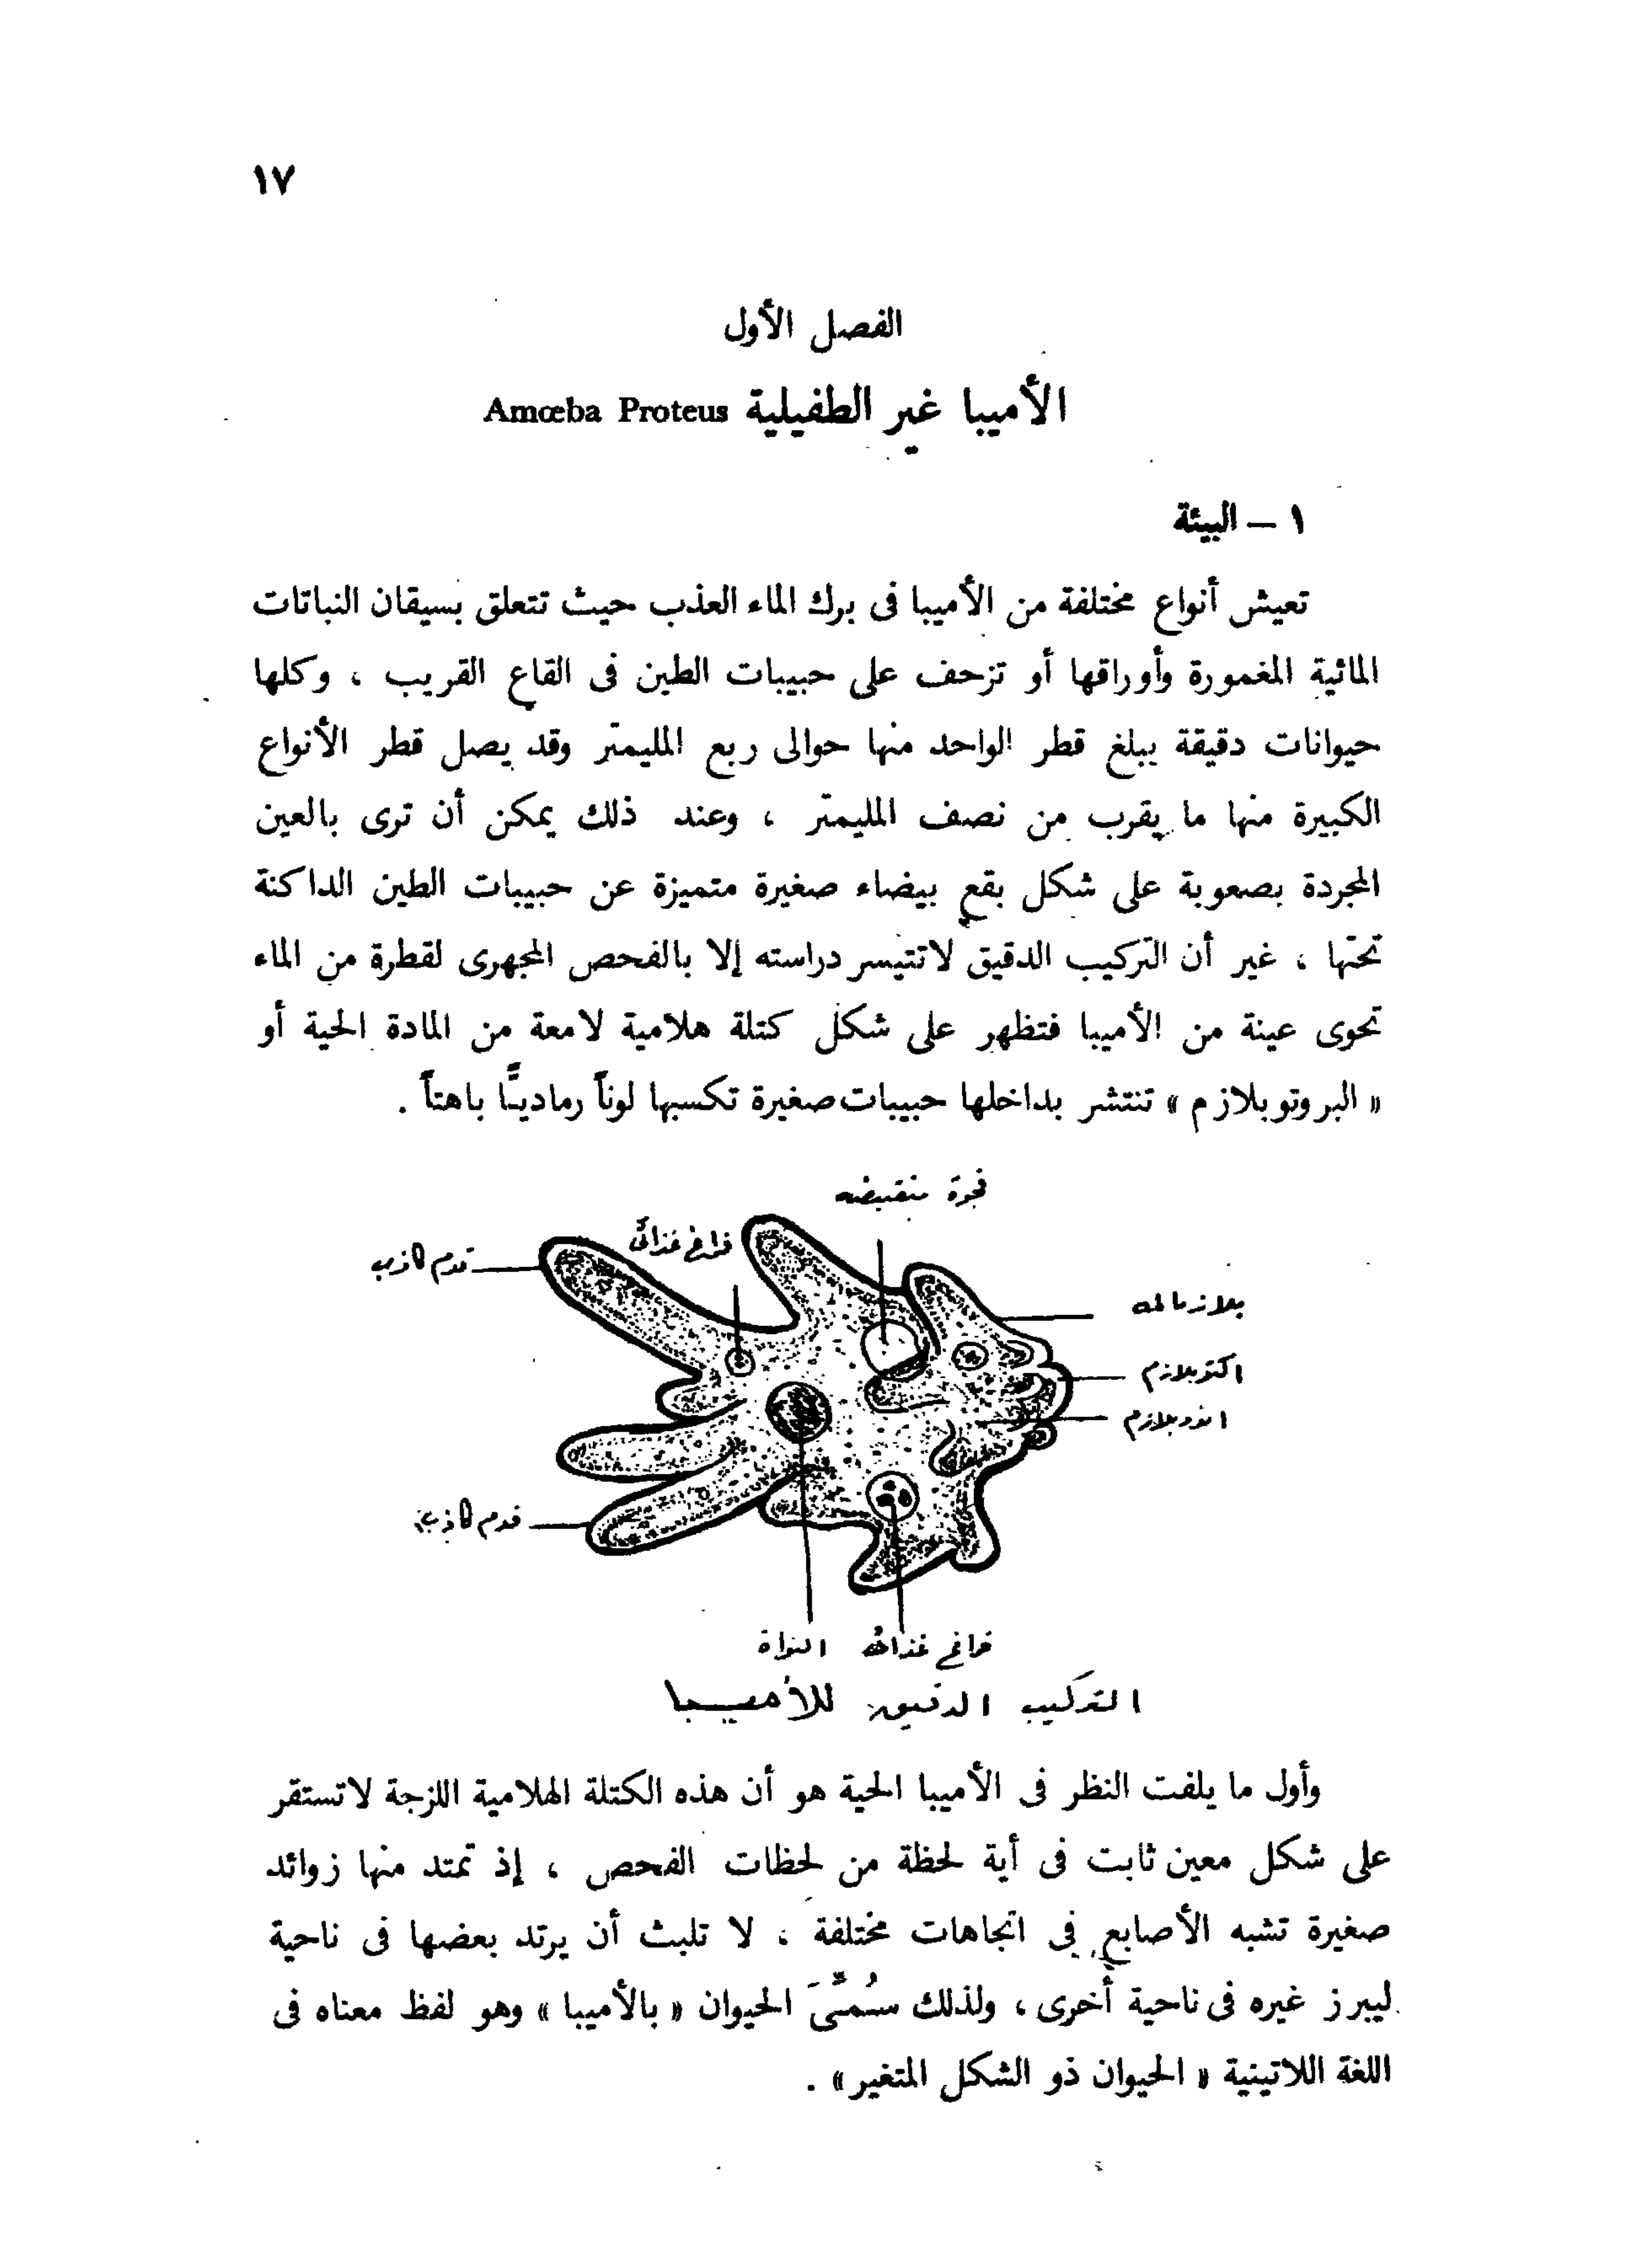 ١٧
الفصل الأول
الأميبا غير الطفيلية Amœba Proteus
١ – البيئة
تعيش أنواع مختلفة من الأميبا فى برك الماء العذب حيث تتعلق بسيقان النباتات
المائية المغمورة وأوراقها أو تزحف على حبيبات الطين فى القاع القريب ، وكلها
حيوانات دقيقة يبلغ قطر الواحد منها حوالى ربع المليمتر وقد يصل قطر الأنواع
الكبيرة منها ما يقرب من نصف المليمتر ، وعند ذلك يمكن أن ترى بالعين
المجردة بصعوبة على شكل بقع بيضاء صغيرة متميزة عن حبيبات الطين الداكنة
تحتها ، غير أن التركيب الدقيق لا تتيسر دراسته إلا بالفحص المجهرى لقطرة من الماء
تحوى عينة من الأميبا فتظهر على شكل كتلة هلامية لامعة من المادة الحية أو
« البروتوبلازم » تنتشر بداخلها حبيبات صغيرة تكسبها لوناً رماديًّا باهتاً .
فجوة منقبضه
فراغ غذائى
قدم كاذب
اكتوبلازم
اندوبلازم
قدم كاذب
فراغ غذائى
النواة
التركيب الدقيق للأميبا
وأول ما يلفت النظر فى الأميبا الحية هو أن هذه الكتلة الهلامية اللزجة لا تستقر
على شكل معين ثابت فى أية لحظة من لحظات الفحص ، إذ تمتد منها زوائد
صغيرة تشبه الأصابع فى اتجاهات مختلفة ، لا تلبث أن يرتد بعضها فى ناحية
ليبرز غيره فى ناحية أخرى ، ولذلك سُمِّىَ الحيوان « بالأميبا » وهو لفظ معناه فى
اللغة اللاتينية « الحيوان ذو الشكل المتغير » .